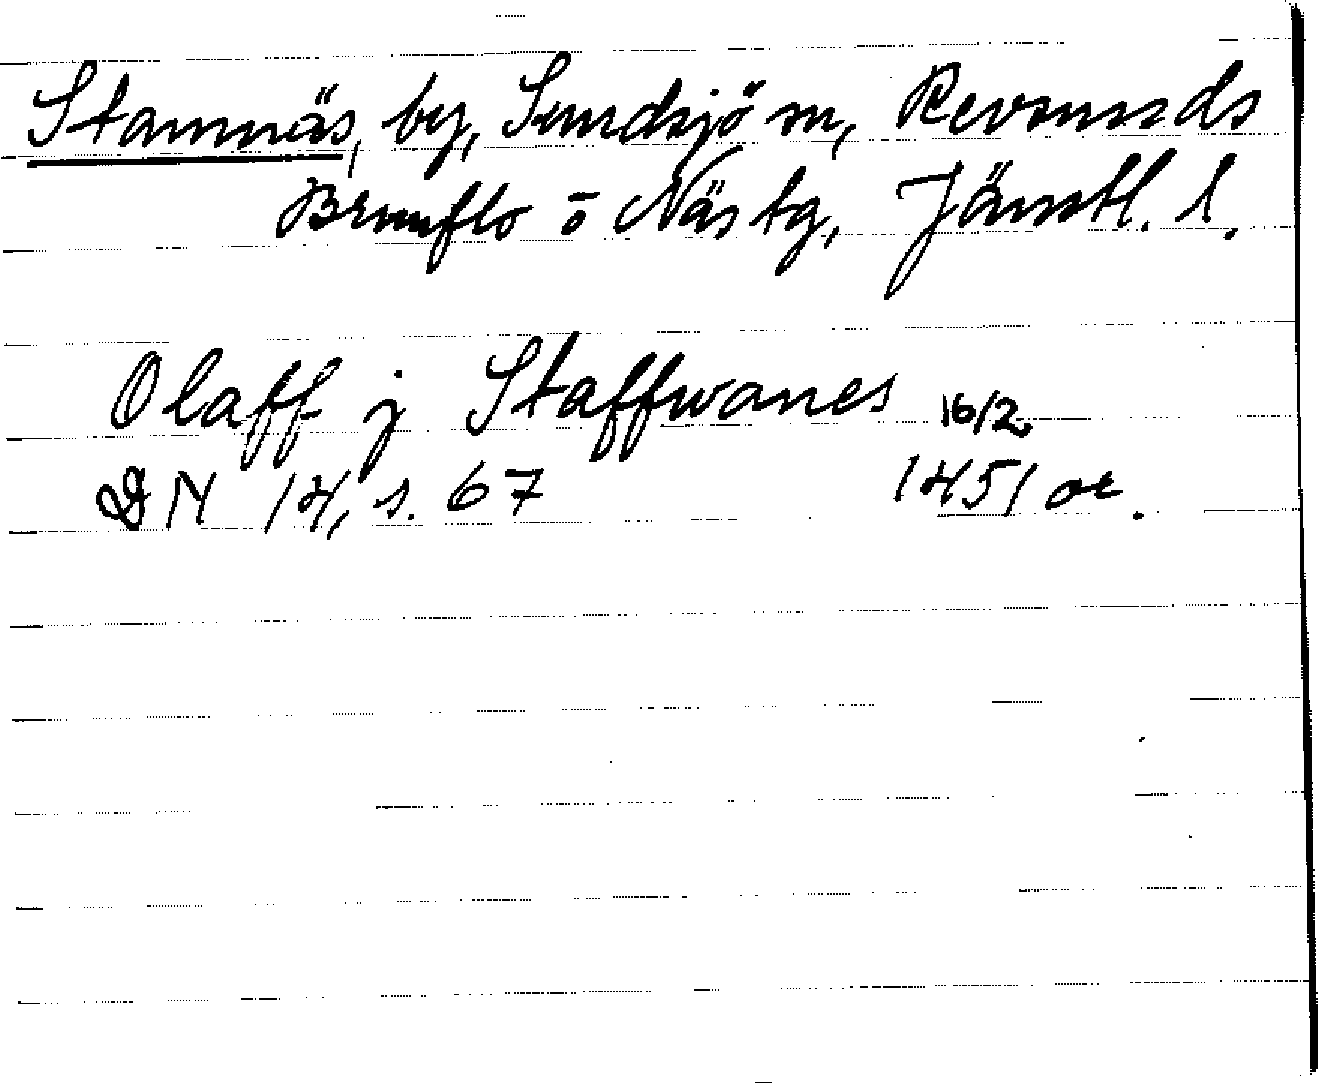 Stamnäs, by, Sundsjö sn, Revsunds
Brunflo o Näs tg, Jämtl. l.
Olaff j Staffwanes 16/2
DN 14, s. 67 1451 or.